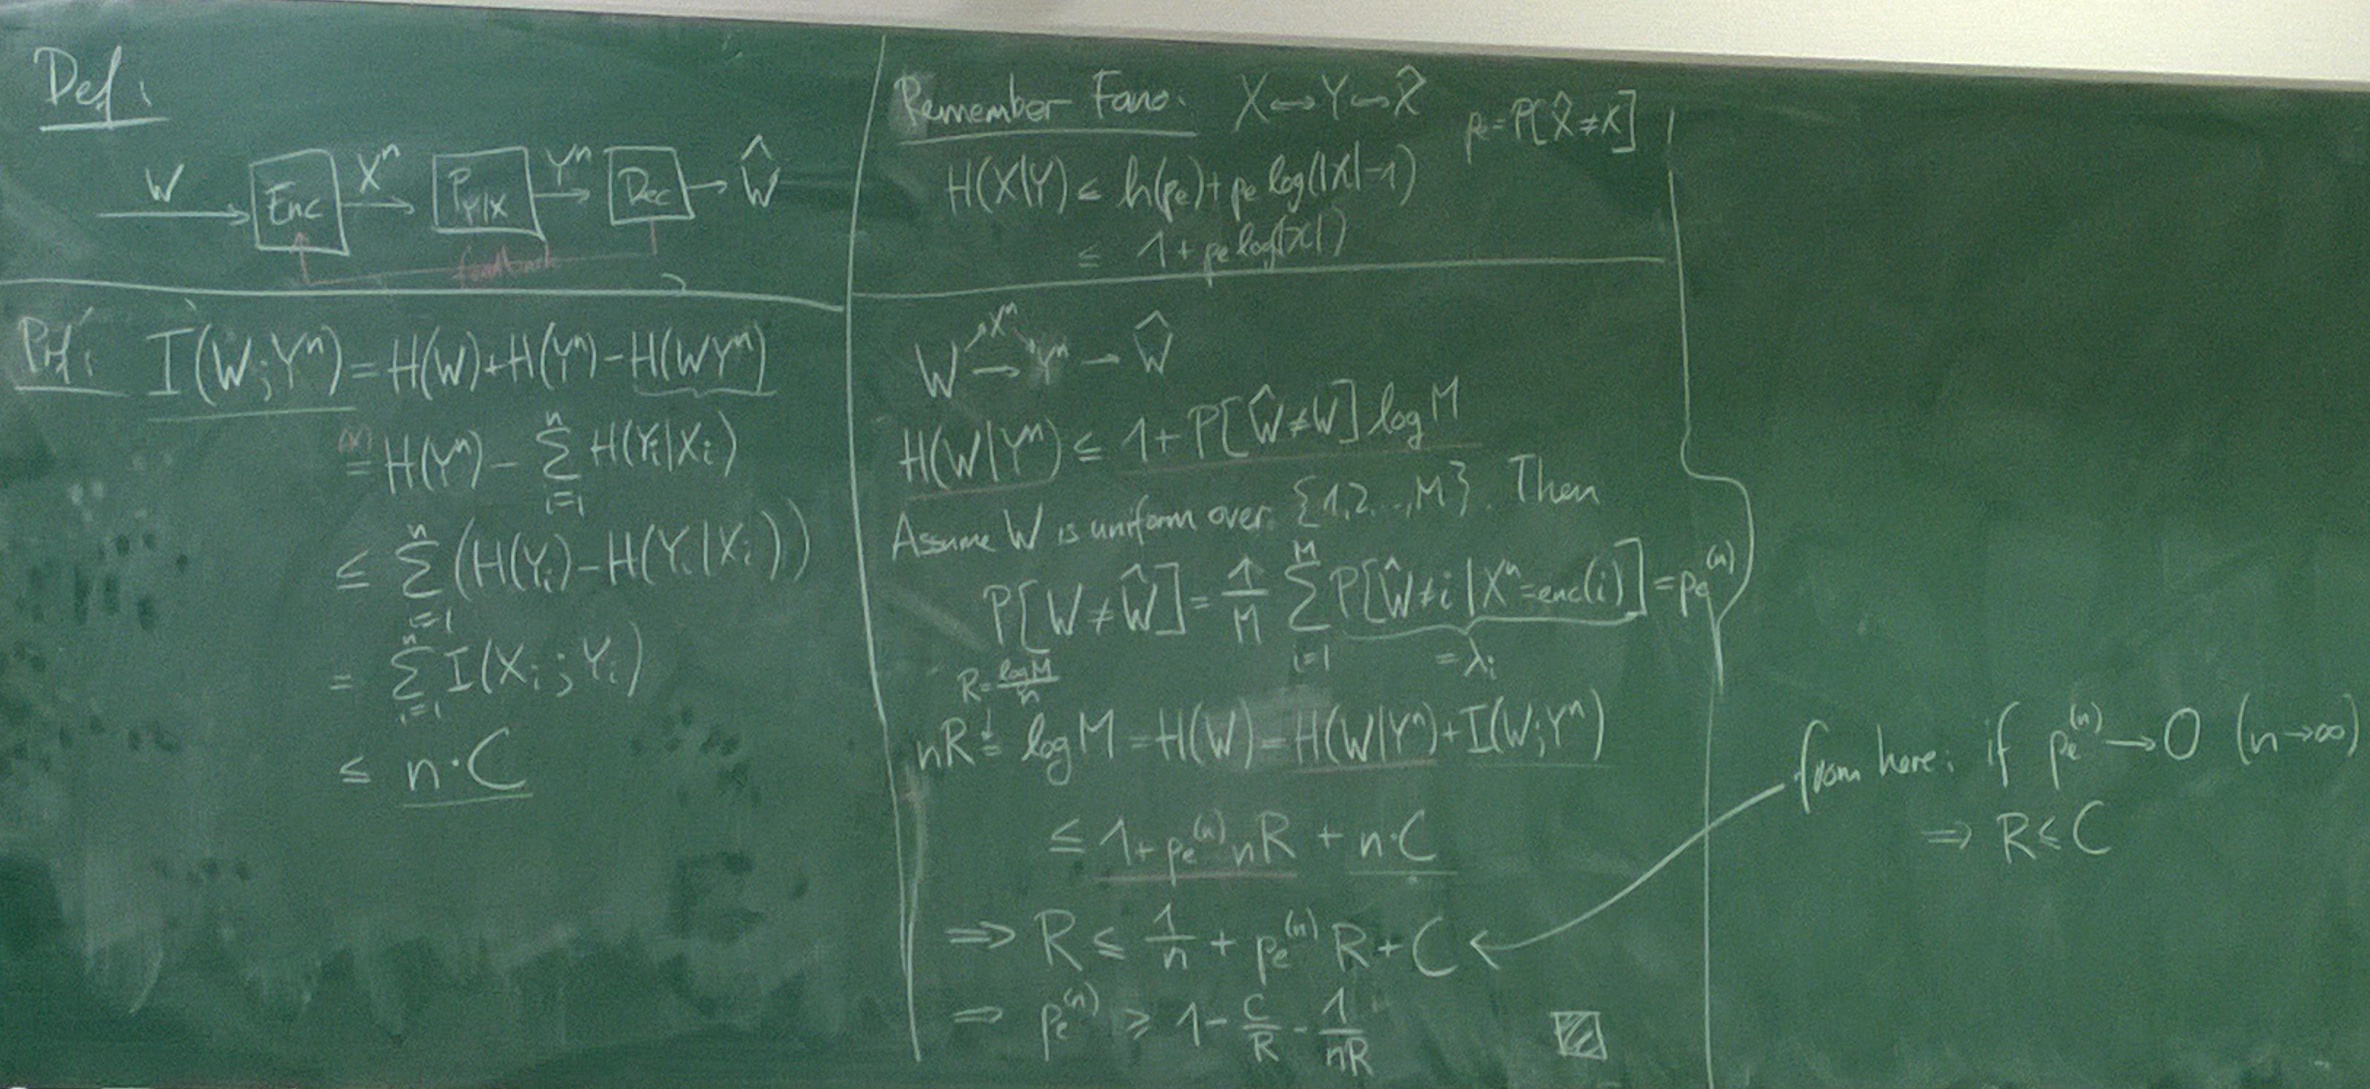 Def:
W → Enc Xⁿ → P_{Y|X} Yⁿ → Dec → Ŵ
feedback
Prf: I(W;Yⁿ) = H(W)+H(Yⁿ)-H(WYⁿ)
(*) = H(Yⁿ) - ∑_{i=1}^{n} H(Y_i|X_i)
≤ ∑_{i=1}^{n} (H(Y_i)-H(Y_i|X_i))
= ∑_{i=1}^{n} I(X_i;Y_i)
≤ n·C
Remember Fano: X↔Y↔X̂ p_e=P[X̂≠X]
H(X|Y) ≤ h(p_e)+p_e log(|𝒳|-1)
≤ 1+p_e log(|𝒳|)
W → Xⁿ → Yⁿ → Ŵ
H(W|Yⁿ) ≤ 1+P[Ŵ≠W] log M
Assume W is uniform over {1,2,..,M}. Then
P[W≠Ŵ] = 1/M ∑_{i=1}^{M} P[Ŵ≠i|Xⁿ=enc(i)] = p_e^{(n)}
=λ_i
R = log M / n
nR = log M = H(W) = H(W|Yⁿ)+I(W;Yⁿ)
≤ 1+p_e^{(n)} nR + n·C
⇒ R ≤ 1/n + p_e^{(n)} R + C
⇒ p_e^{(n)} ≥ 1 - C/R - 1/nR
from here: if p_e^{(n)} → 0 (n→∞)
⇒ R ≤ C